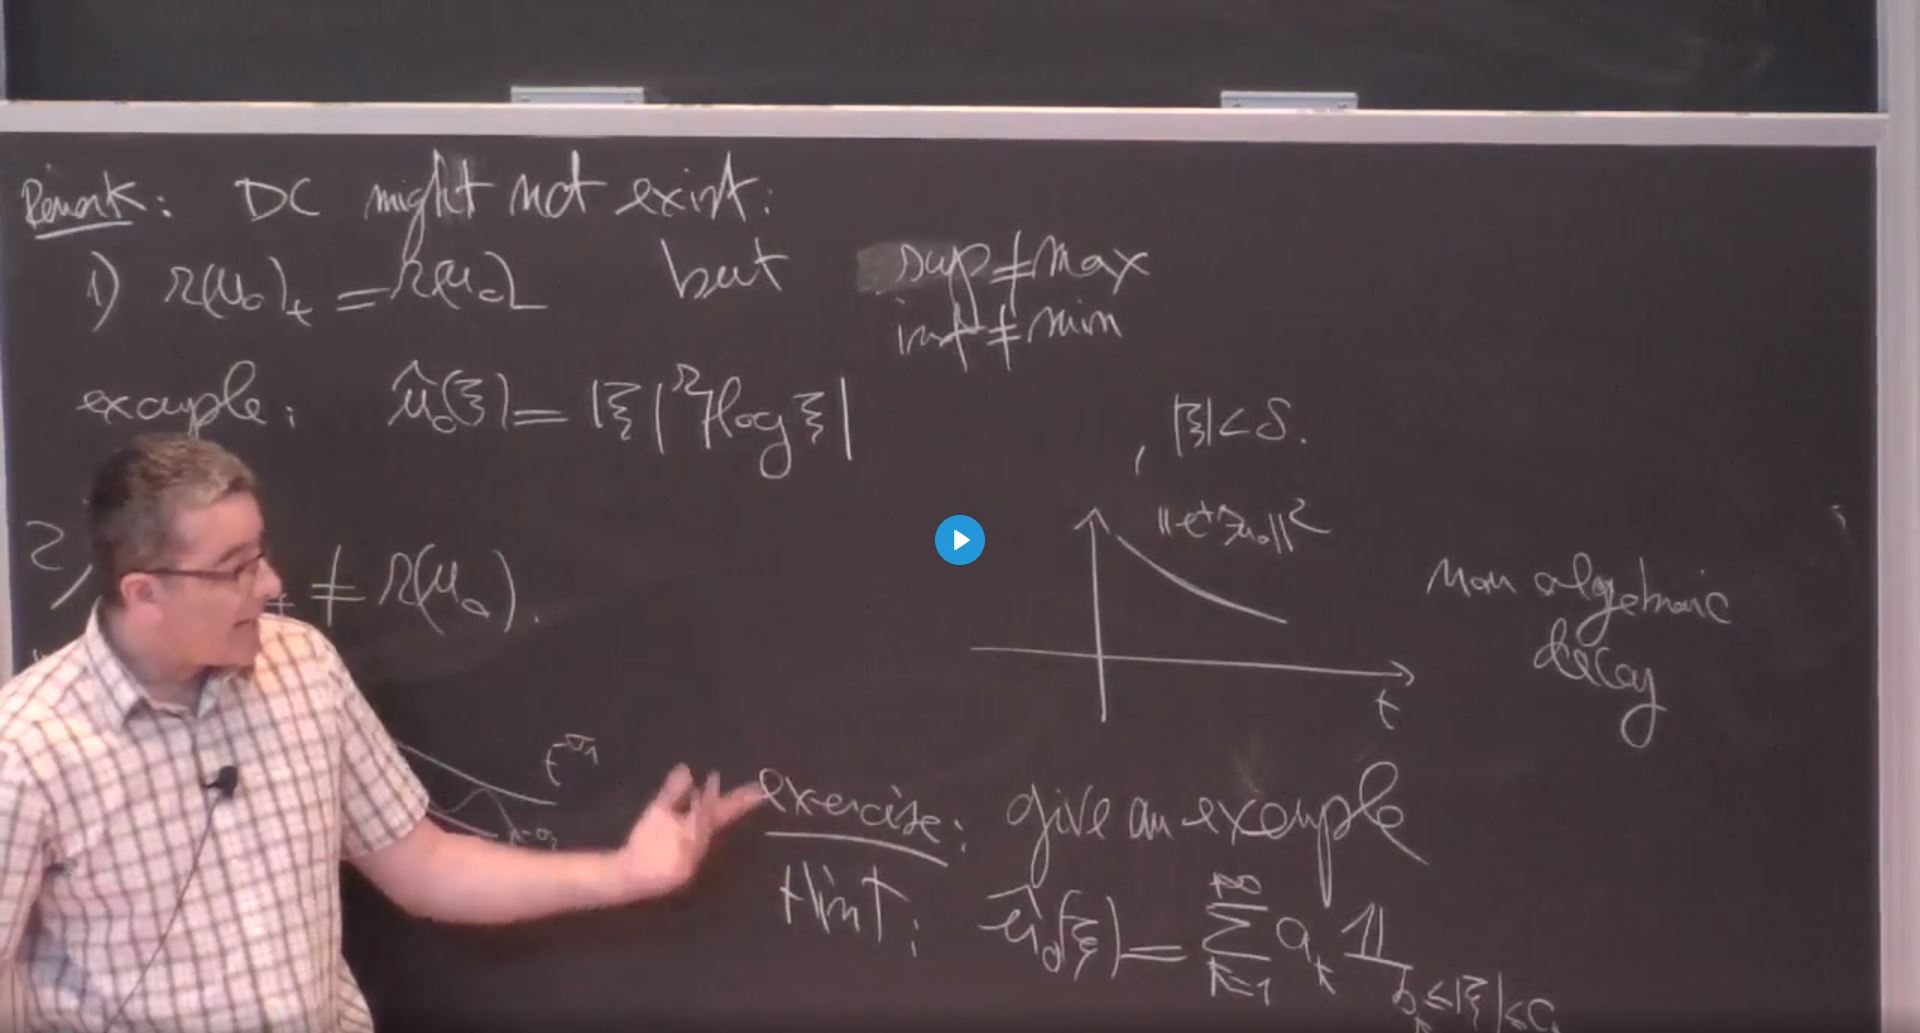 Remark: DC might not exist:
1) r(u₀)₊ = r(u₀)₋ but sup ≠ max
inf ≠ min
example: û₀(ξ) = |ξ|^r |log ξ| , |ξ| < δ.
2) ₊ ≠ r(u₀)₋.
‖e^{tΔ}u₀‖²
t
non algebraic
decay
t^{-σ₁}
t^{-σ₂}
exercise: give an example
Hint: û₀(ξ) = ∑_{k=1}^{+∞} a_k 𝟙_{b_k ≤ |ξ| ≤ c_k}